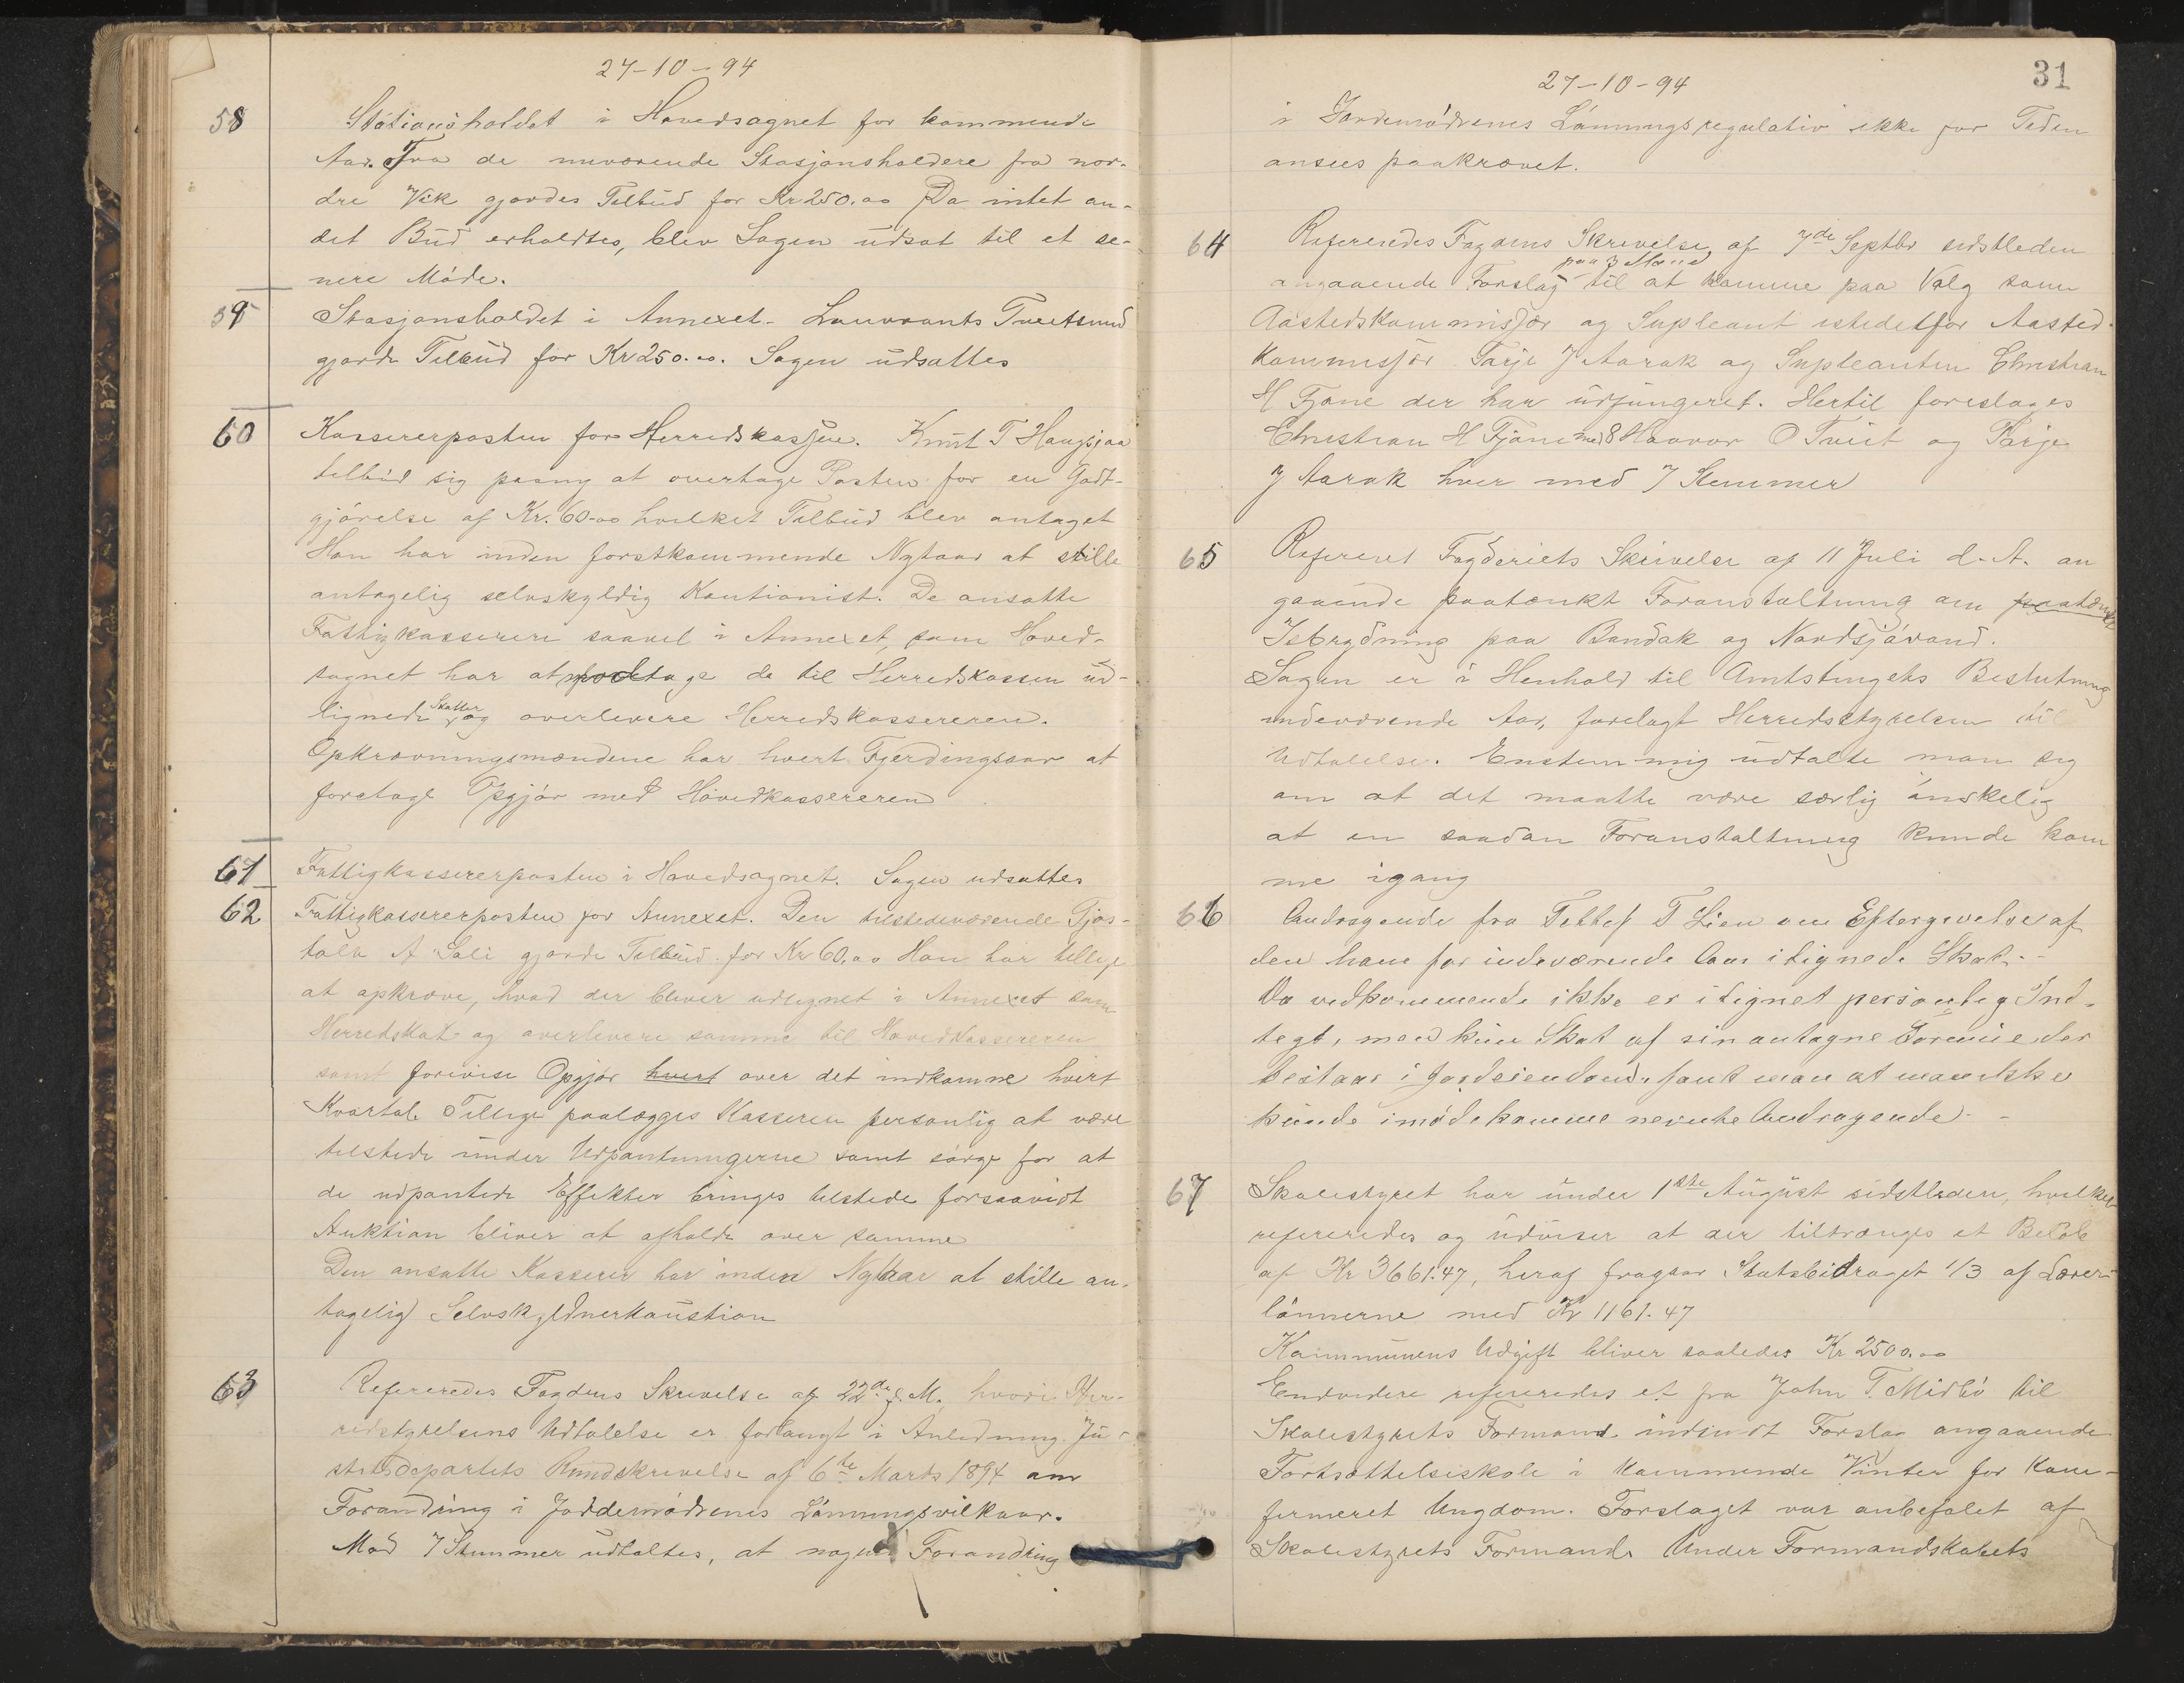 27-10-94
58
Stationsholdet i Hovedsagnet for kommende
Aar. Fra de nuværende Stasjonsholdere fra nor-
dre Vik gjordes Tilbud for Kr 250.00 Da intet an-
det Bud erholdtes, blev Sagen udsat til et se-
nere Møde.
59
Stasjonsholdet i Annexet. Lauvrants Tveitsund
gjorde Tilbud for Kr 250.00. Sagen udsattes
60
Kassererposten for Herredskassen. Knut T Haugsjaa
tilbud sig paany at overtage Posten for en Godt-
gjørelse af Kr. 60-00 hvilket Tilbud blev antaget
Han har inden førstkommende Nytaar at stille
antagelig selvskyldig Kautionist. De ansatte
Fattigkasserere saavel i Annexet, som Hoved-
sagnet har at modtage de til Herredskassen ud-
lignede Skatter og overlevere Herredskassereren.
Opkrævningsmændene har hvert Fjerdingsaar at
foretage Opgjør med Hovedkassereren
61
Fattigkassererposten i Hovedsagnet. Sagen udsattes
62
Fattigkassererposten for Annexet. Den tilstedeværende Tjøs-
tolv A Sali gjorde Tilbud for Kr 60.00 Han har tillige
at opkræve, hvad der bliver udlignet i Annexet som
Herredskat og overlevere samme til Hovedkassereren
samt forevise Opgjør hvert over det indkomne hvert
Kvartal. Tillige paalægges Kasseren personlig at være
tilstede under Udpantningerne samt sørge for at
de udpantede Effekter bringes tilstede forsaavidt
Auktion bliver at afholde over samme
Den ansatte Kasserer har inden Nytaar at stille an-
tagelig Selvskyldnerkaustion
63
Refereredes Fogdens Skrivelse af 22de f. M. hvori Her-
redstyrelsens Udtalelse er forlangt i Anledning Ju-
stitsdepartets Rundskrivelse af 6te Marts 1894 om
Forandring i Jordemødrenes Lønningsvilkaar.
Med 7 Stemmer udtaltes, at nogen Forandring
31
27-10-94
i Jordemødrenes Lønningsregulativ ikke for Tiden
ansees paakrævet.
64
Refereredes Fogdens Skrivelse af 7de Septbr sidstleden
paa 3 Mænd
angaaende Forslag til at komme paa Valg som
Aastedskommissær og Supleant istedetfor Aasted-
kommissær Tarje J Aarak og Supleanten Christian
H Fjone der har udfungeret. Hertil foreslages
Christian H Fjone med 8 Haavor O Tveit og Tarje
J Aarak hver med 7 Stemmer
65
Refereret Fogderiets Skrivelse af 11 Juli d. A. an
gaaende paatænkt Foranstaltning om paatænkt
Isbrydning paa Bandak og Nordsjøvand.
Sagen er i Henhold til Amtstingets Beslutning
indeværende Aar, forelagt Herredsstyrelsen til
Udtalelse. Enstemmig udtalte man sig
om at det maatte være særlig ønskelig
at en saadan Foranstaltning kunde kom
me igang
66
Andragende fra Tellef T Lien om Eftergivelse af
den ham for indeværende Aar ilignede Skat. -
Da vedkommende ikke er ilignet personlig Ind-
tegt, men kun Skat af sin antagne Formue der
bestaar i Jordeiendom, fant man at man ikke
kunde imødekomme nevnte Andragende. -
67
Skolestyret har under 1ste August sidstleden, hvilket
refereredes og udviser at der tiltrænges et Beløb
af Kr 3661.47, heraf fragaar Statsbidraget 1/3 af Lærer-
lønnerne med Kr 1161.47
Kommunens Udgift bliver saaledes Kr 2500.00
Endvidere refereredes et fra John T. Midbø til
Skolestyrets Formand indsendt Forslag angaaende
Fortsættelsiskole i kommende Vinter for kon-
firmeret Ungdom. Forslaget var anbefalet af
Skolestyrets Formand. Under Formandskabets